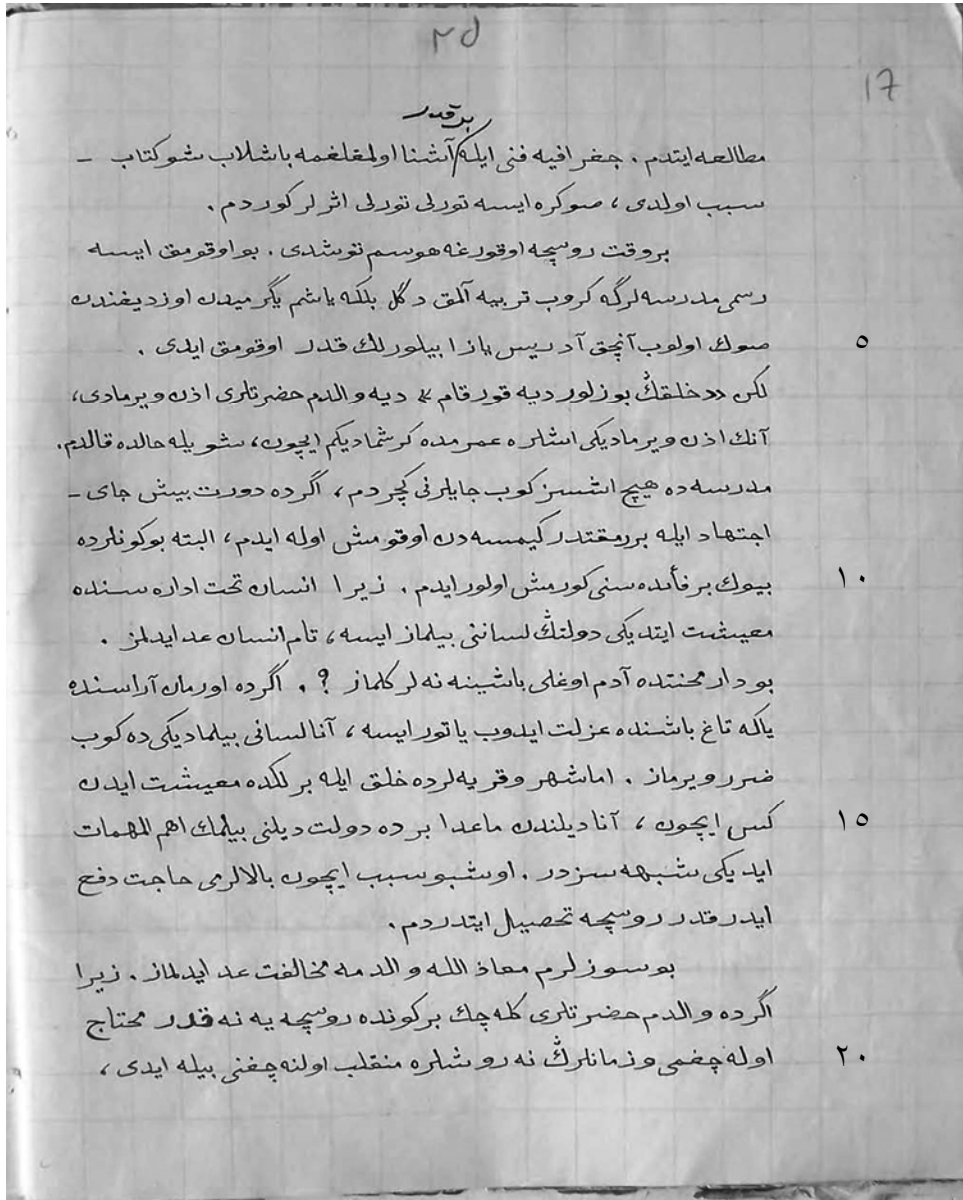 ٢٥
17
بر قدر
مطالعه ایتدم . جغرافیه فنی ایله آشنا اولمقلغمه باشلاب شو کتاب –
سبب اولدی ، صوکره ایسه تورلی تورلی اثرلر کوردم .
بر وقت روسچه اوقورغه هوسم توشدی . بو اوقومق ایسه
رسمی مدرسه لرگه کروب تربیه آلمق دگل بلکه یاشم یگرمیدن اوزدیغندن
صوك اولوب آنچق آدریس یازا بیلورلك قدر اوقومق ایدی . ٥
لکن «خلقنڭ بوزلور دیه قورقام» دیه والدم حضرتلری اذن ویرمادی،
آنك اذن ویرمادیکی اشلره عمرمده کرشمادیکم ایچون، شویله حالده قالدم.
مدرسه ده هیچ اشسز کوب جایلرنی کچردم ، اگرده دورت بیش جای –
اجتهاد ایله بر مقتدر کیمسه دن اوقومش اوله ایدم ، البته بو کونلرده
بیوك بر فائده سنی کورمش اولور ایدم . زیرا انسان تحت اداره سنده ١٠
معیشت ایتدیکی دولتنڭ لساننی بیلماز ایسه ، تام انسان عد ایدلمز .
بو دار محنتده آدم اوغلی باشینه نه لر کلماز ؟ . اگرده اورمان آراسنده
یاکه تاغ باشنده عزلت ایدوب یاتور ایسه ، آنا لسانی بیلمادیکی ده کوب
ضرر ویرماز . اما شهر و قریه لرده خلق ایله برلکده معیشت ایدن
کس ایچون ، آنا دیلندن ماعدا بر ده دولت دیلنی بیلمك اهم المهمات ١٥
ایدیکی شبهه سزدر . اوشبو سبب ایچون بالالرمی حاجت دفع
ایدر قدر روسچه تحصیل ایتدردم .
بو سوزلرم معاذ الله والدمه مخالفت عد ایدلماز . زیرا
اگرده والدم حضرتلری کله چك بر کونده روسچه یه نه قدر محتاج
اوله چغمی و زمانلرڭ نه روشلره منقلب اولنه چغنی بیله ایدی ، ٢٠